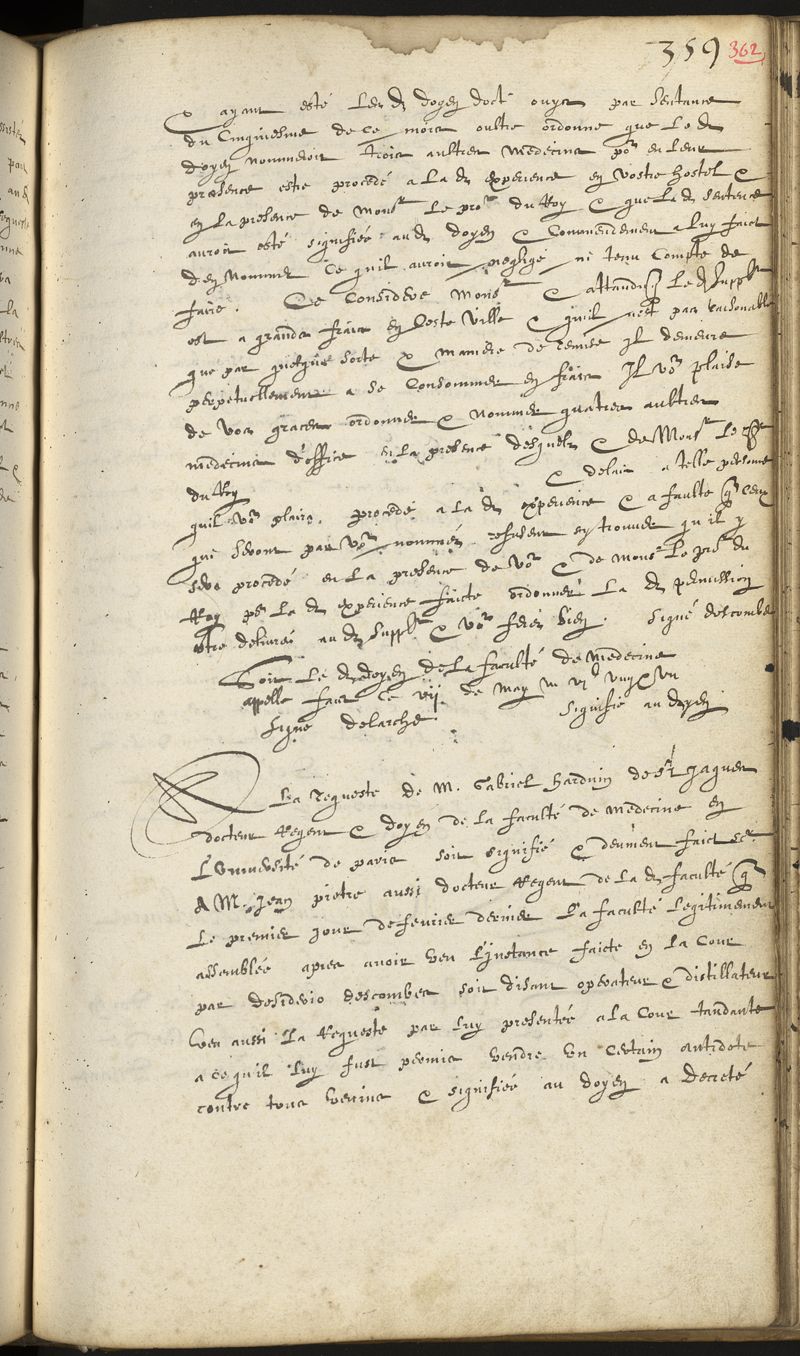 359 362
Et ayant esté led doyen doct ouys par sentence
du cinquiesme de ce mois oultre ordonne que led
doyen nommeroit trois aultres medecins po en leur
presence estre procedé a lad experience en vostre hostel et
en la presence de Monsr le pror du Roy et que lad sentence
auroit esté signifiée aud doyen et commendement a luy faict
d'en nommer ce quil auroit negligé ni tenu compte de
faire. Ce consideré Monsr et attandu q led suppt
est a grands frais en ceste ville et quil nest pas raisonable
que par quelque sorte et maniere de remise il demeure
perpetuellement a se consommer en frais Il vo plaise
de vos graces ordonner et nommer quatres aultres
medecins d'office en la presence desquels et de Monsr le pr
du Roy et delais a telle persone
quil vo plaira, procedé a lad experience et a faulte q ceux
qui seront par vo nommés refusent sy trouver qu il y
sera procedé en la presence de vo et de monsr le pror du
Roy po lad experience faicte ordonner lad permission
estre delivrée aud suppt et vo ferés bien. Signé descombes
Soit led doyen de la faculté de medecine
appellé faict ce vij de may
Signé delarche. Signifié au doyen
A la requeste de M. Gabriel Harduin de St Jaques
docteur Regent et doyen de la faculté de medecine en
l'université de paris soit signifié et deument faict
A M. Jean pietre aussi docteur Regent de lad faculté q
le premier jour de fevrier dernier la faculté legitimement
assemblée apres avoir veu l'instance faicte en la cour
par desiderio descombes soit disant operateur et distillateur
veu aussi la requeste par luy presentée a la cour tandante
a ce qu'il luy fust permis vendre un certain antidote
contre tous venins et signifiée au doyen a decreté